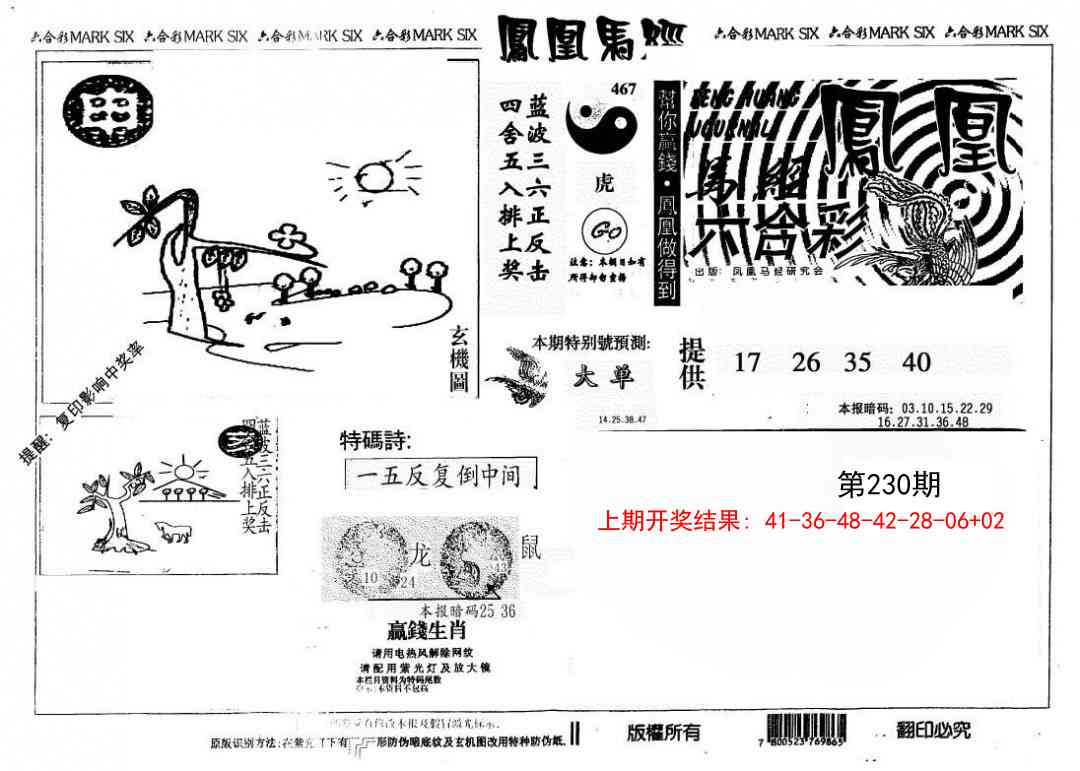 六合彩MARK SIX 六合彩MARK SIX 六合彩MARK SIX 六合彩MARK SIX
鳳凰馬經
六合彩MARK SIX 六合彩MARK SIX 六合彩MARK SIX
玄機圖
提醒：复印影响中奖率
蓝波三六正反击
四舍五入排上奖
467
虎
GO
注意：本期日如有
所得却勿重播
幫你贏錢·鳳凰做得到
FENG HUANG
JOURNAL
鳳凰
馬經
六合彩
出版：凤凰马经研究会
本期特别號預測:
大单
14.25.38.47
提供
17 26 35 40
本报暗码：03.10.15.22.29
16.27.31.36.48
第230期
上期开奖结果：41-36-48-42-28-06+02
蓝波三六正反击
四舍五入排上奖
特碼詩:
一五反复倒中间
龙
鼠
10
24
43
本报暗码25 36
贏錢生肖
请用电热风解除网纹
请配用紫光灯及放大镜
本栏目资料为特码尾数
本资料不包括
原版识别方法:
形防伪暗底纹及玄机图改用特种防伪纸.
版權所有
7 800523 769865
翻印必究